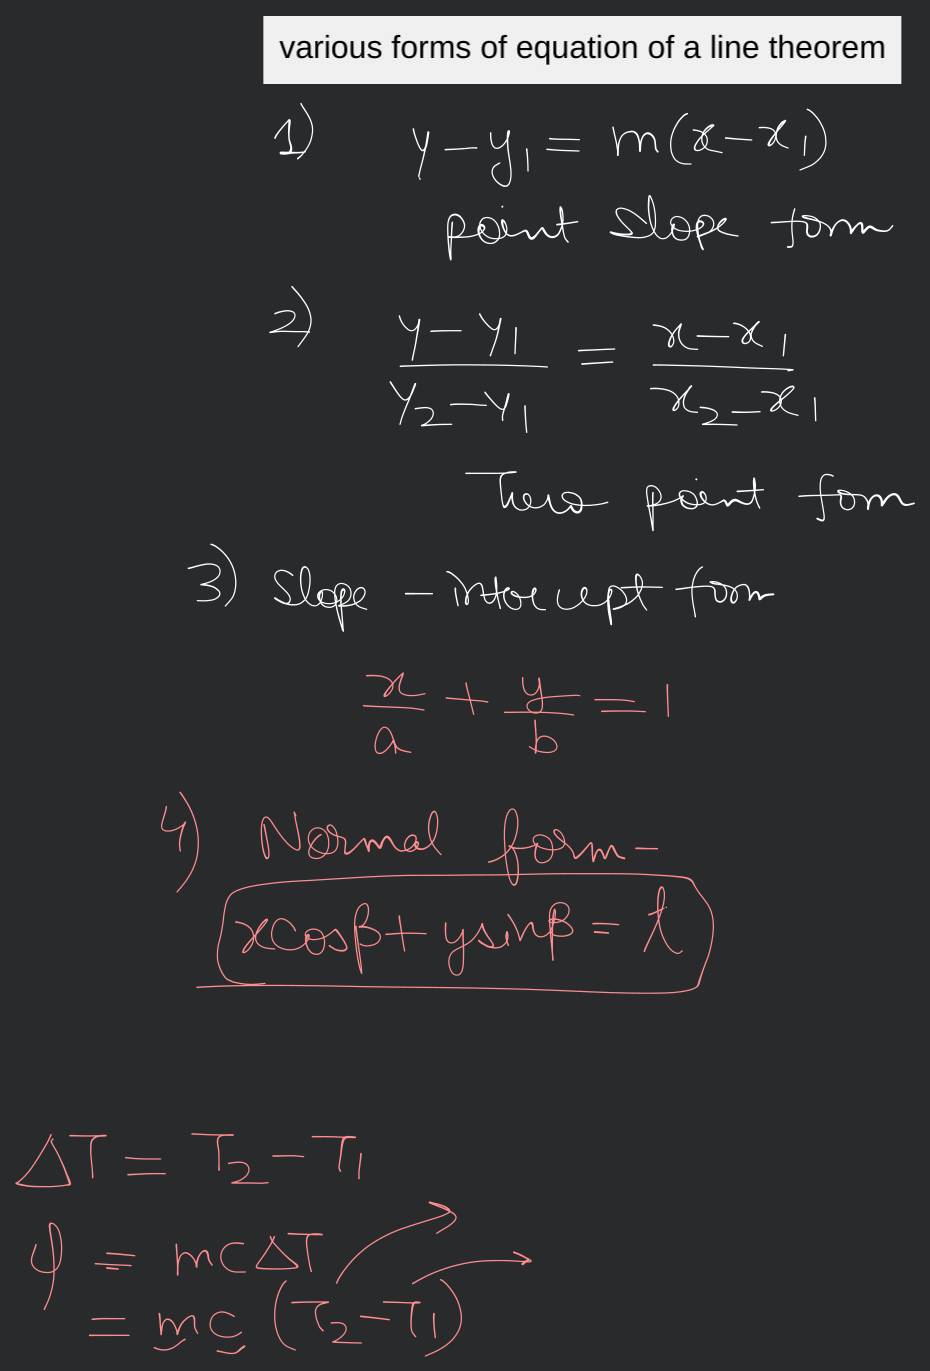 various forms of equation of a line theorem
1) y-y₁ = m(x-x₁)
point slope form
2) (y-y₁)/(y₂-y₁) = (x-x₁)/(x₂-x₁)
Two point form
3) Slope - intercept form
x/a + y/b = 1
4) Normal form-
xcosβ+ysinβ=t
ΔT = T₂-T₁
φ = mcΔT
= mc (T₂-T₁)